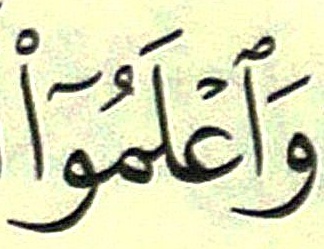 وَٱعْلَمُوٓا۟